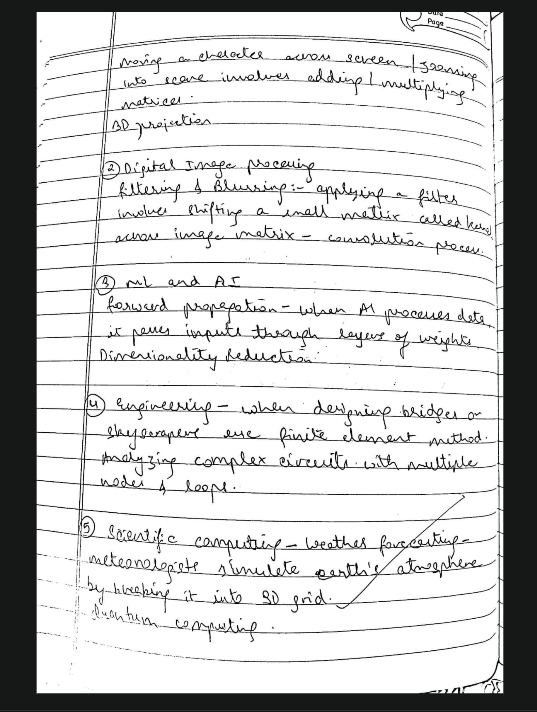 Date
Page
moving a character across screen / zooming
into scene involves adding / multiplying
matrices.
3D projection
② Digital Image processing
filtering & Blurring :- applying a filter
involves shifting a small matrix called kernel
across image matrix - convolution process.
③ ML and AI
forward propagation - when AI processes data,
it passes inputs through layers of weights
Dimensionality Reduction.
④ Engineering - when designing bridges or
skyscrapers use finite element method.
Analyzing complex circuits with multiple
nodes & loops.
⑤ Scientific computing - weather forecasting -
meteorologists simulate earth's atmosphere
by breaking it into 3D grid.
Quantum computing.